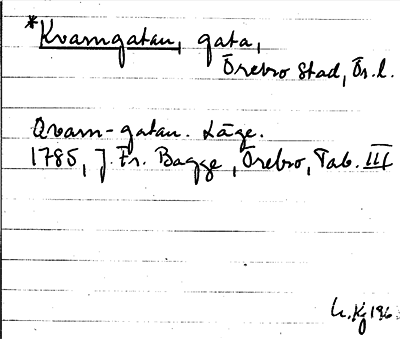 *Kvarngatan, gata,
Örebro stad, Ör. l.
Qvarn-gatan. Läge.
1785, J. Fr. Bagge, Örebro, Tab. III